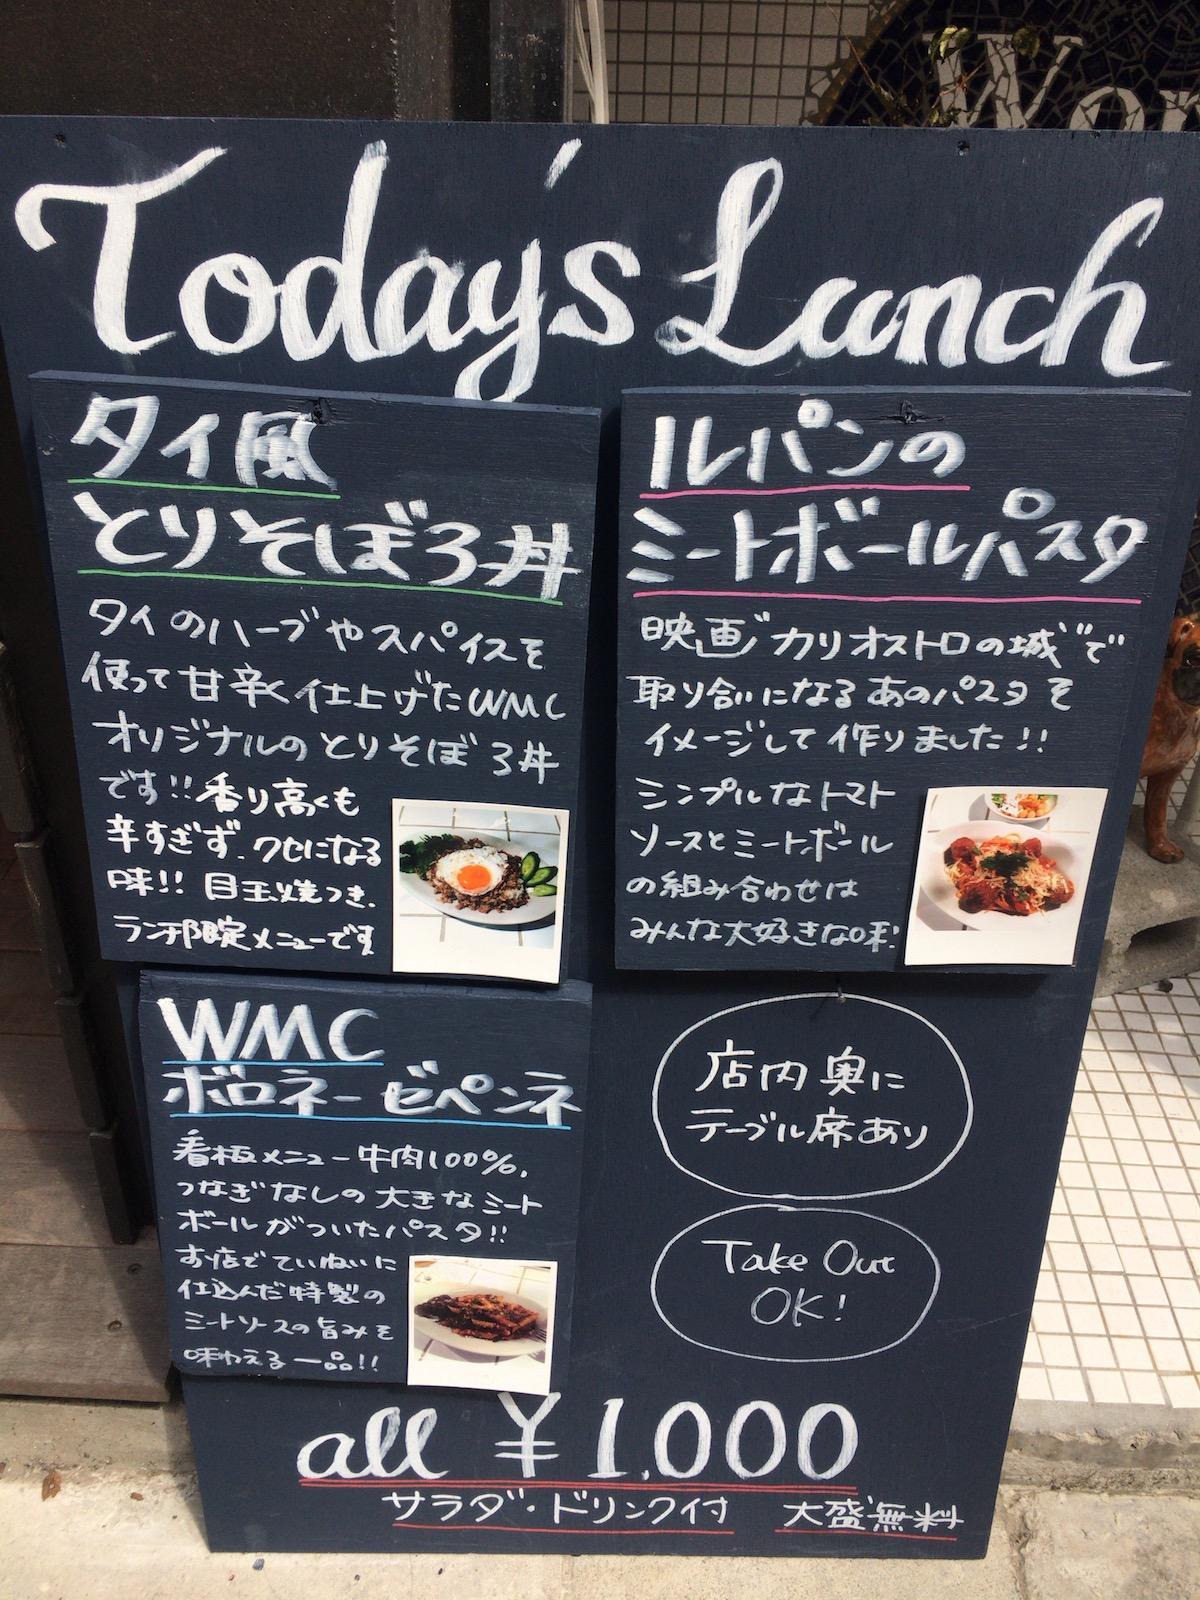 Today's Lunch
タイ風
とりそぼろ丼
タイのハーブやスパイスを
使って甘辛く仕上げたWMC
オリジナルのとりそぼろ丼
です!!香り高くも
辛すぎず、クセになる
味!! 目玉焼つき、
ランチ限定メニューです
ルパンの
ミートボールパスタ
映画"カリオストロの城"で
取り合いになるあのパスタを
イメージして作りました!!
シンプルなトマト
ソースとミートボール
の組み合わせは
みんな大好きな味!
WMC
ボロネーゼペンネ
看板メニュー牛肉100%、
つなぎなしの大きなミート
ボールがついたパスタ!!
お店でていねいに
仕込んだ特製の
ミートソースの旨みを
味わえる一品!!
店内奥に
テーブル席あり
Take Out
OK!
all ¥1,000
サラダ・ドリンク付 大盛無料